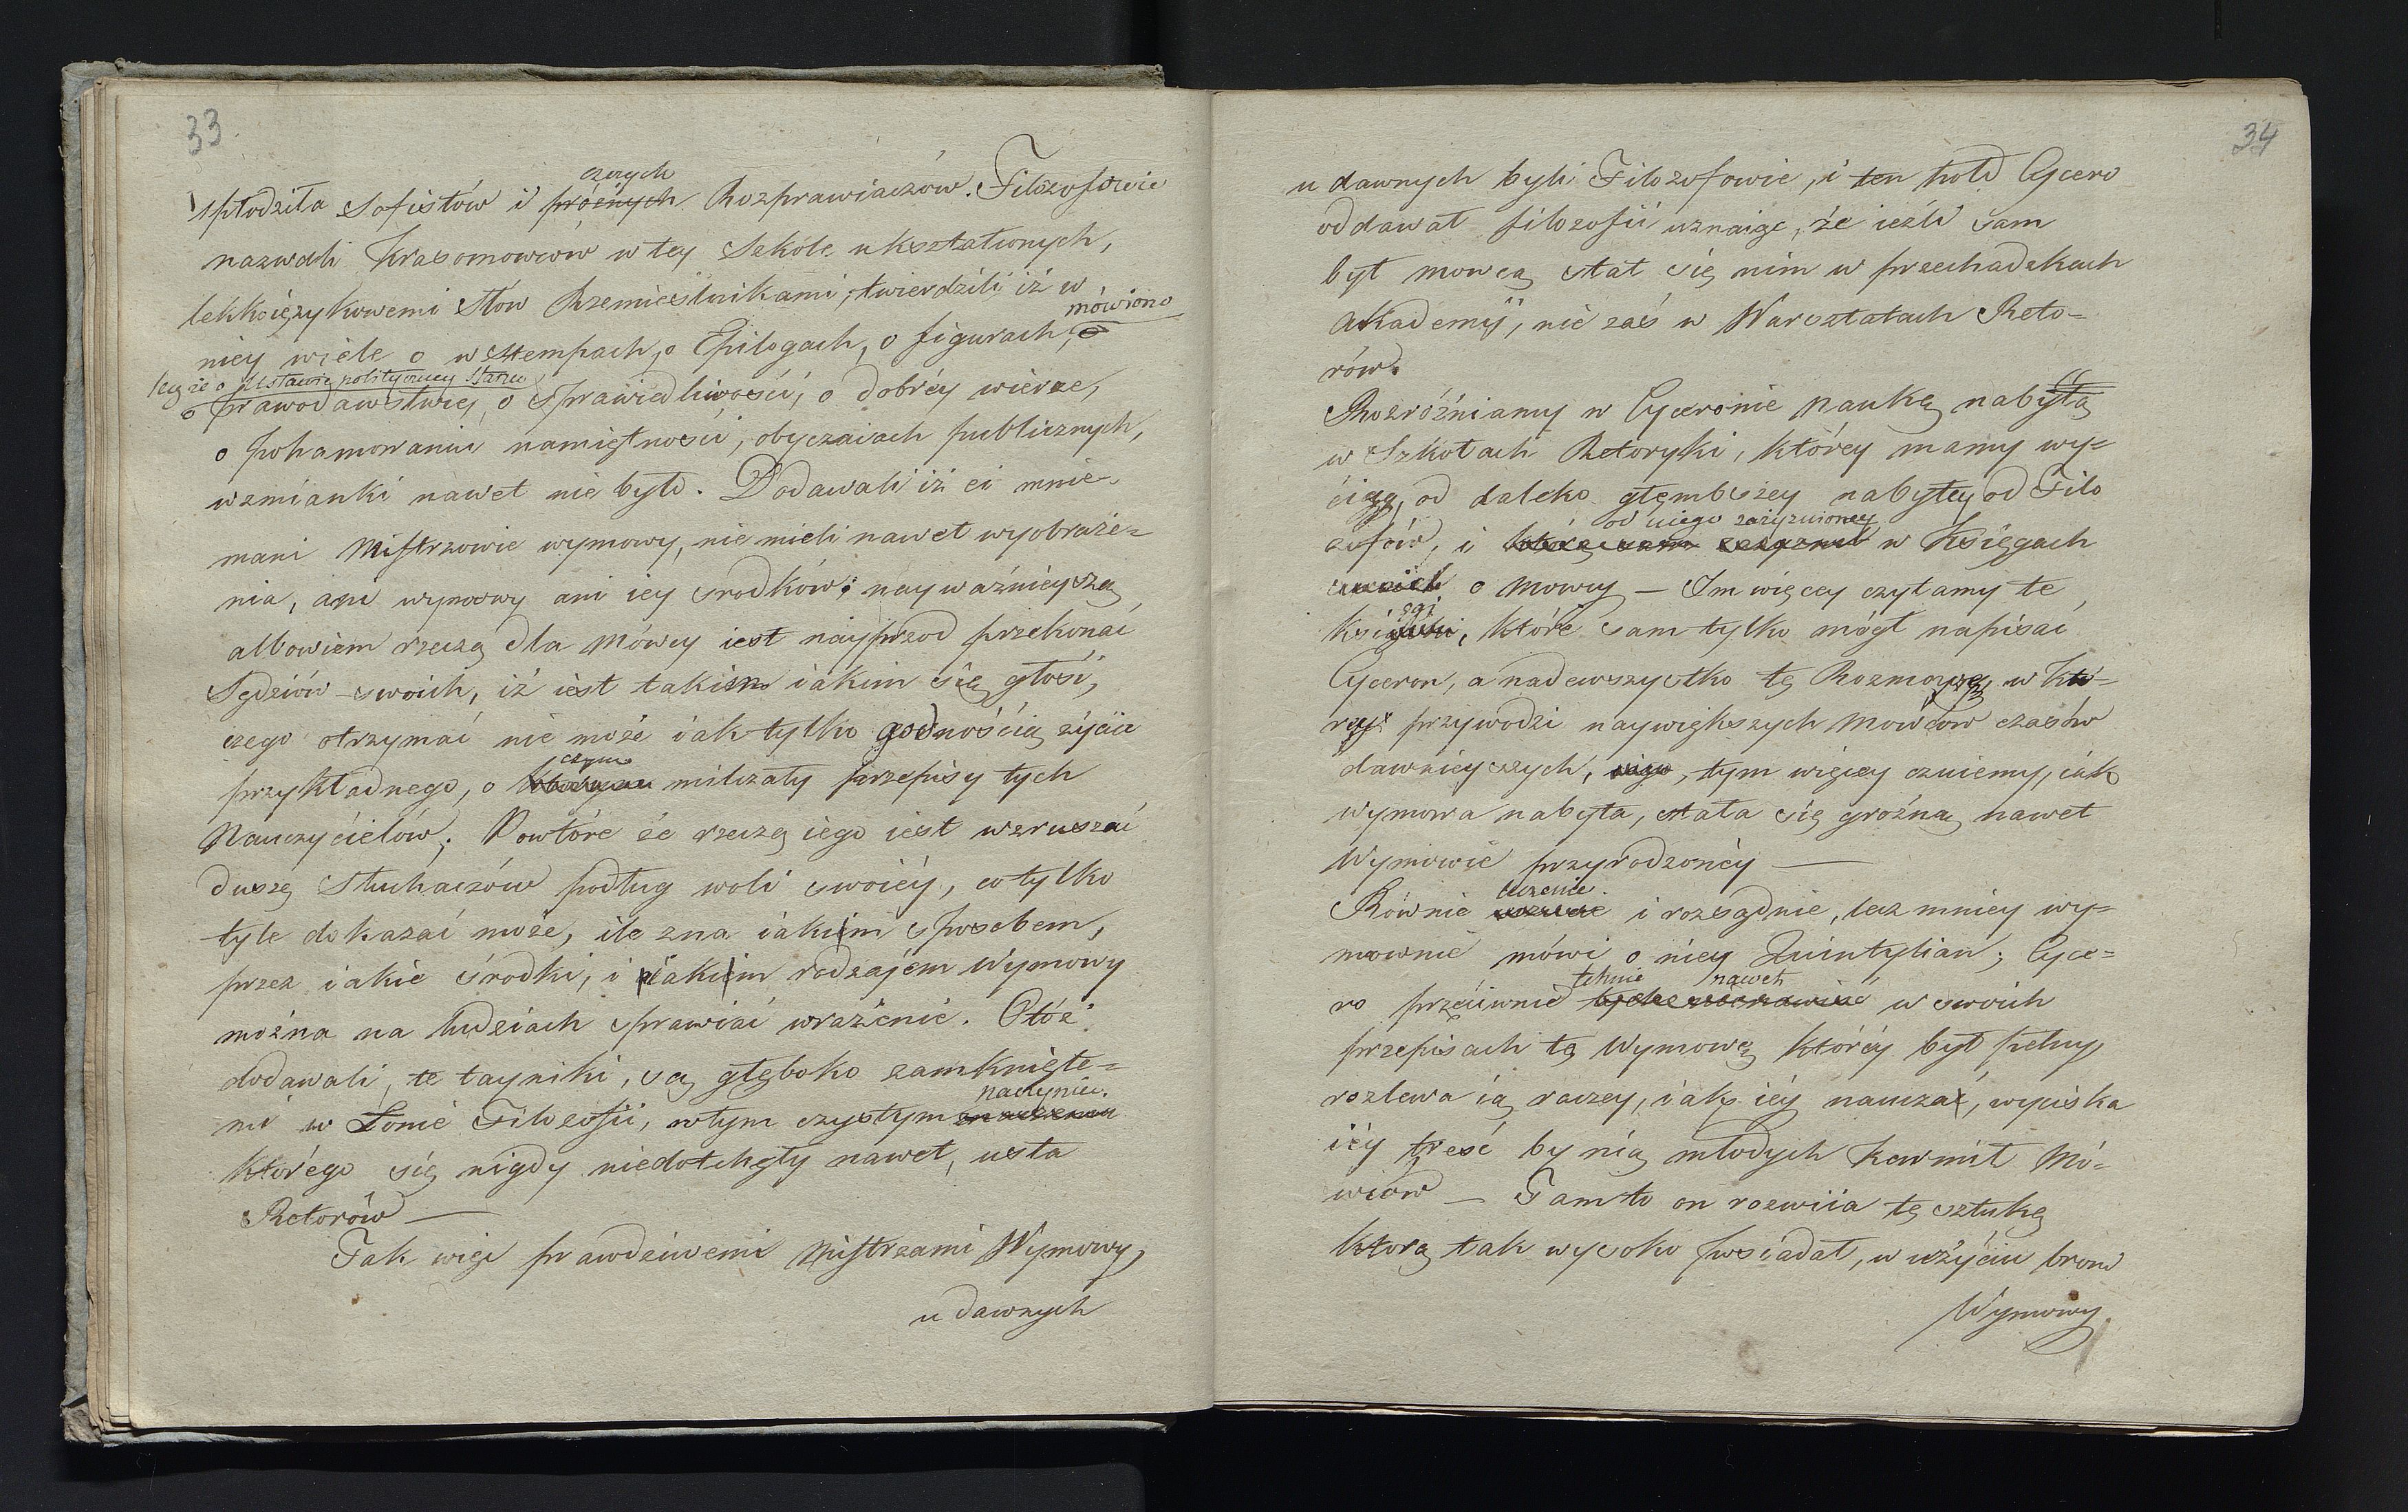 33
czczych
spłodziła Sofistów i próżnych Rozprawiaczów. Filozofowie
nazwali Krasomowców w tey Szkole ukształconych,
lekkoięzykowemi słów Rzemieślnikami; twierdzili iż w
mówiono
niey wiele o wstempach, o Epilogach, o figurach, o
lecz że o Ustawie polityczney Stanu
o prawodawstwie, o Sprawiedliwości, o dobréy wierze,
o pohamowaniu namiętności, obyczaiach publicznych,
wzmianki nawet nie było. Dodawali iż ci mnie-
mani Mistrzowie wymowy, nie mieli nawet wyobraże-
nia, ani wymowy ani iéy srodków; nayważnieyszą
albowiem rzeczą dla Mówcy iest nayprzod przekonać
Sędziów swoich, iż iest takim iakim się głosi,
czego otrzymać nie może iak tylko godnością życia
czym
przykładnego, o milczały przepisy tych
Nauczycielów; Powtóre że rzeczą iego iest wzruszać
duszę Słuchaczów podług woli swoiéy, co tylko
tyle dokazać może, ile zna iakim sposobem,
przez iakie środki, i iakim rodzajem Wymowy
można na ludziach sprawiać wrażenie. Otóż
dodawali, te tayniki, są głęboko zamknięte-
naczyniu
mi w Łonie Filozofii, w tym czystym
którego się nigdy niedotchęły nawet, usta
Retorów —
Tak więc prawdziwemi Mistrzami Wymowy,
u dawnych
34
u dawnych byli Filozofowie, i ten hołd Cycero
oddawał filozofii uznaiąc, że ieźli sam
był mowcą stał się nim w przechadzkach
Akademii, nie zaś w Warsztatach Reto-
rów.
Rozróżniamy w Cyceronie naukę nabytą
w Szkołach Retoryki, którey mamy wy-
ciąg, od daleko głembszey nabytey od Filo
od niego zażyznioney
zofów, i którą sam w Księgach
o mowcy — Im więcey czytamy te
ęgi
Księ, które sam tylko mógł napisać
Cyceron, a nadewszystko tę Rozmowę, w któ-
rey przywodzi naywiększych Mowców czasów
dawnieyszych, tym więcey czuiemy, iak
wymowa nabyta, stała się groźną nawet
Wymowie przyrodzonéy —
uczenie
Równie i rozsądnie, lecz mniey wy-
mownie mówi o niey Quintylian; Cyce-
tchnie nawet
ro przeciwnie w swoich
przepisach tę Wymowę któréy był pełny,
rozlewa ią raczey, iak iéy naucza, wyciska
iéy treść by nią młodych karmił Mó-
wców — Tam to on rozwiia tę sztukę
którą tak wysoko posiadał, w użyciu broni
Wymowy.